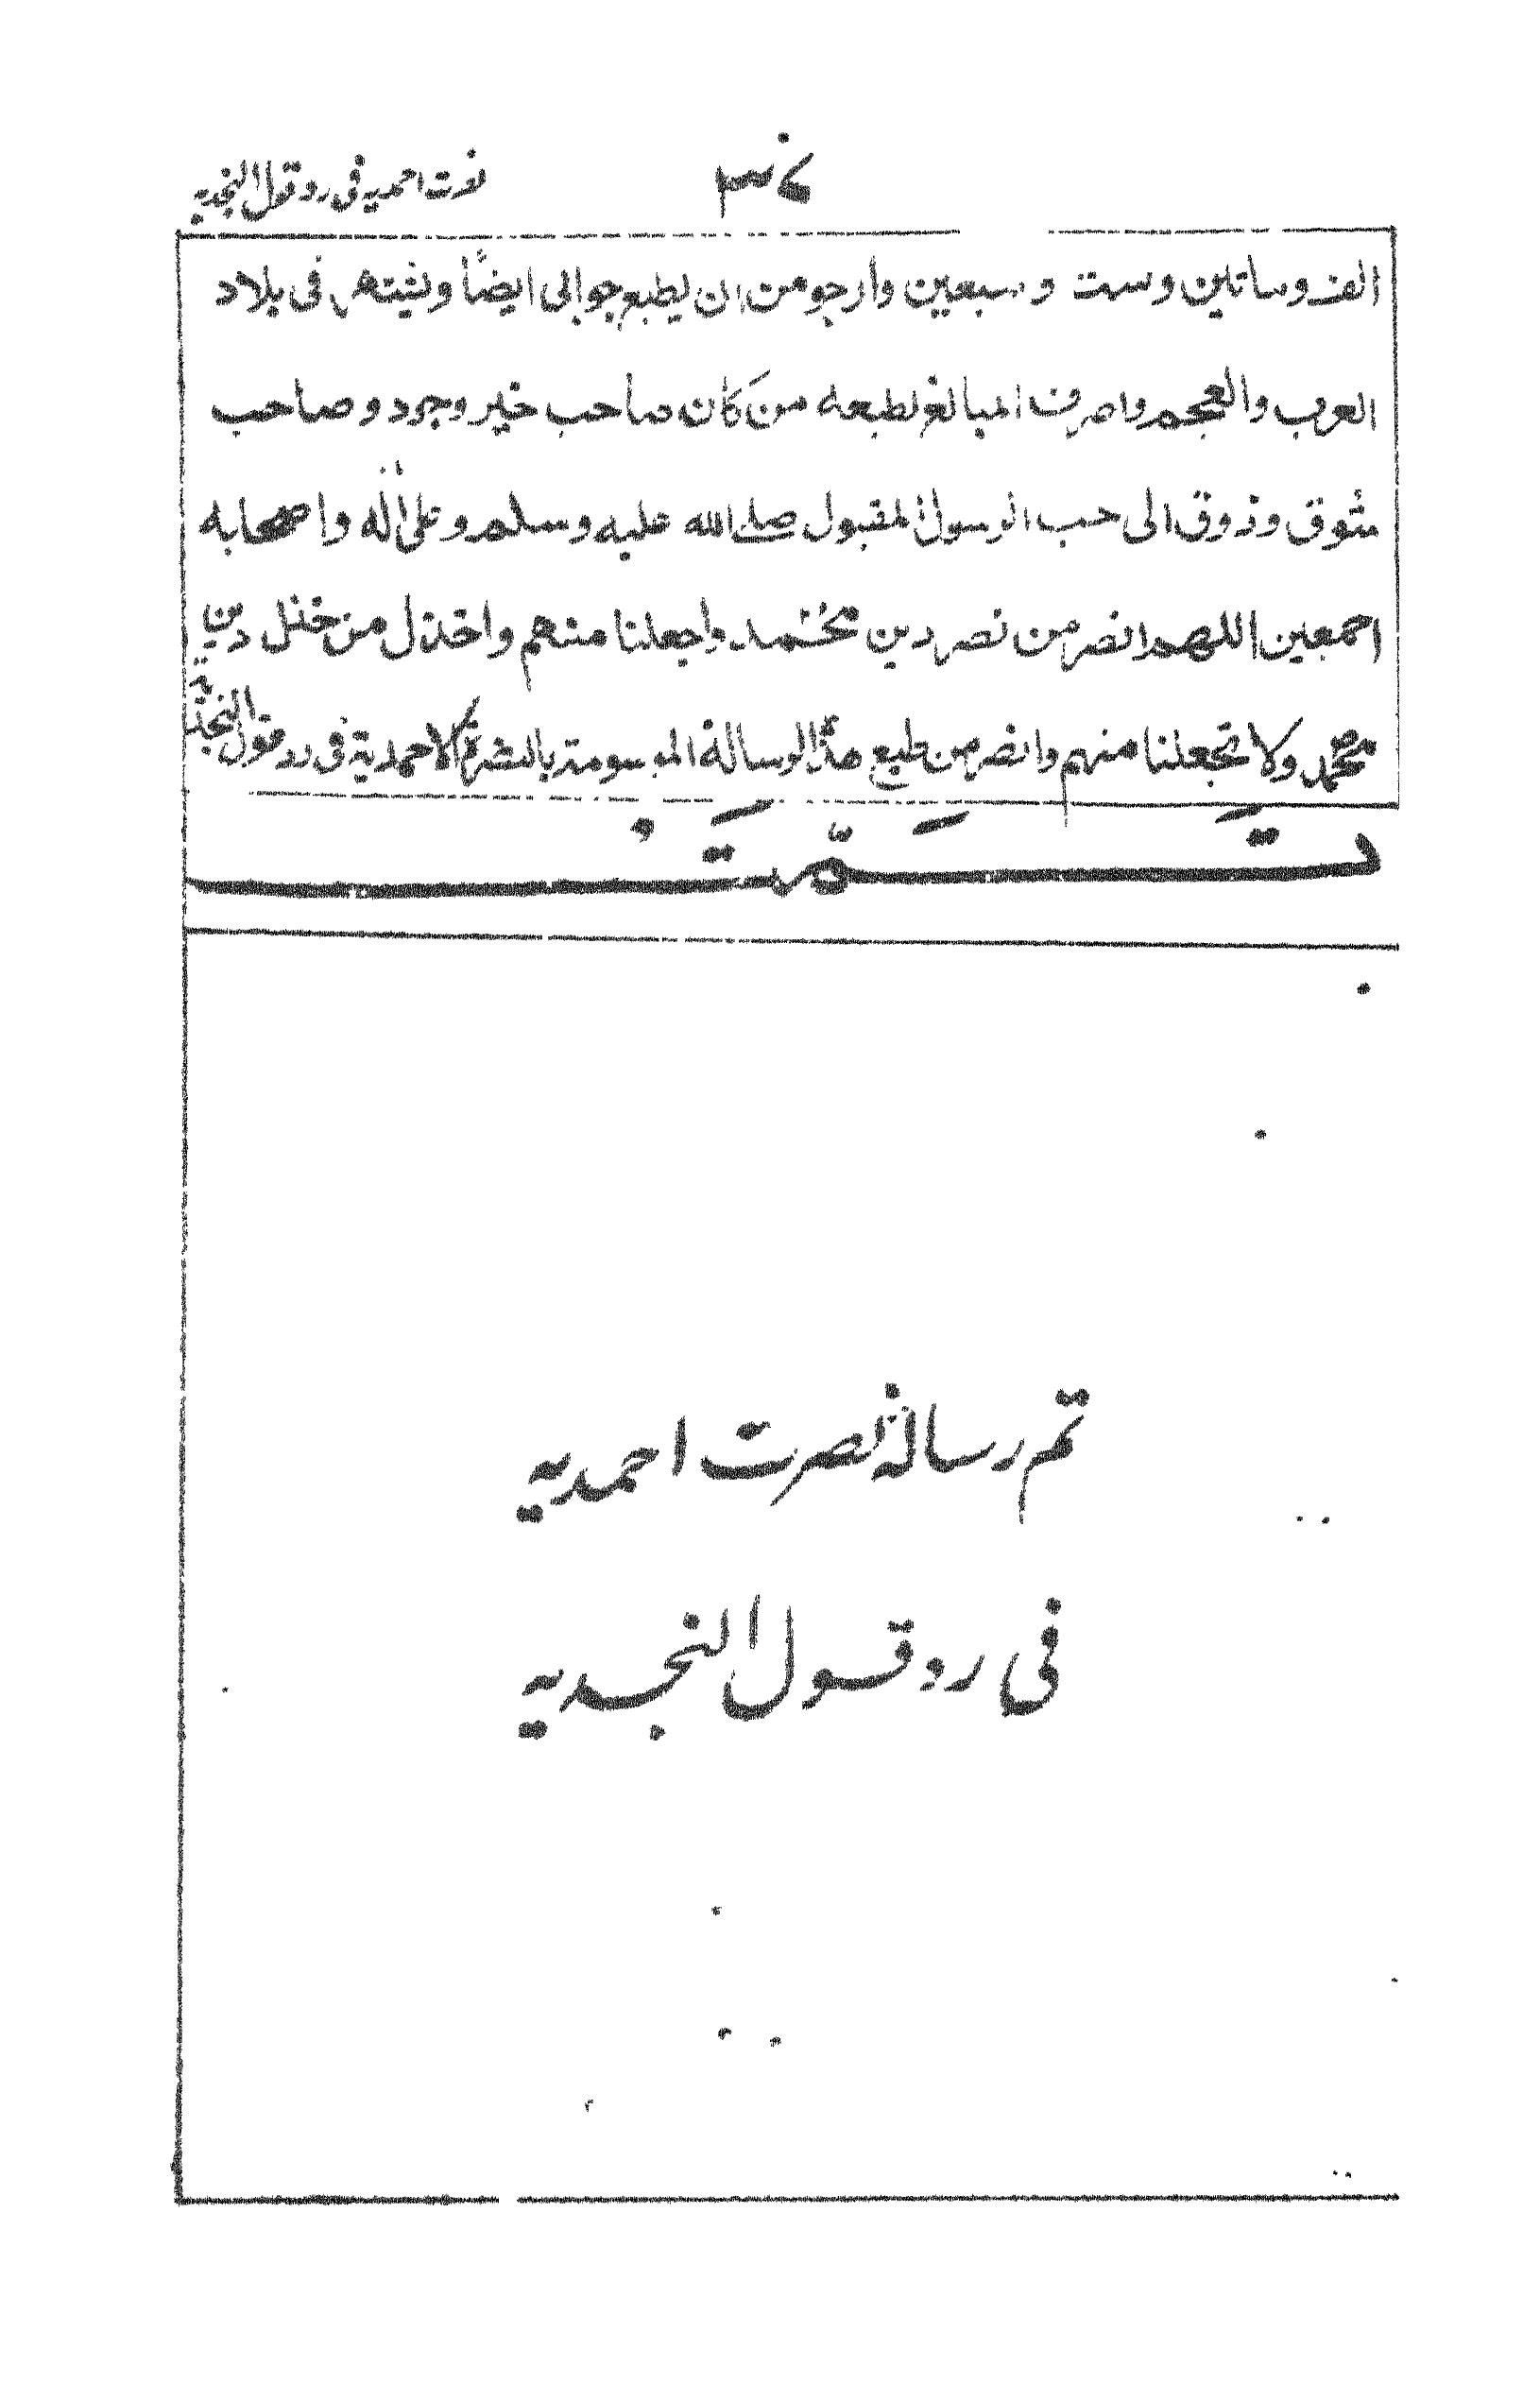 احمديه فى رد قول النجديه
الف وماتين وست و سبعين وارجو من ان يطبع جوابى ايضًا ويشتهر فى بلاد
العرب والعجم واصرف المبالغ لطبعه من كان صاحب خير وجود و صاحب
شوق وذوق الى حب الرسول المقبول صلى الله عليه وسلم وعلى اٰله واصحابه
اجمعين اللهم انصر من نصر دين محمد واجعلنا منهم واخذل من خذل دين
محمد ولا تجعلنا منهم وانصر من طبع هذه الرسالة الموسومة بالنصرة الاحمدية فى رد قول النجدية
تمت
تم رسالة نصرت احمديه
فى رد قول النجديه